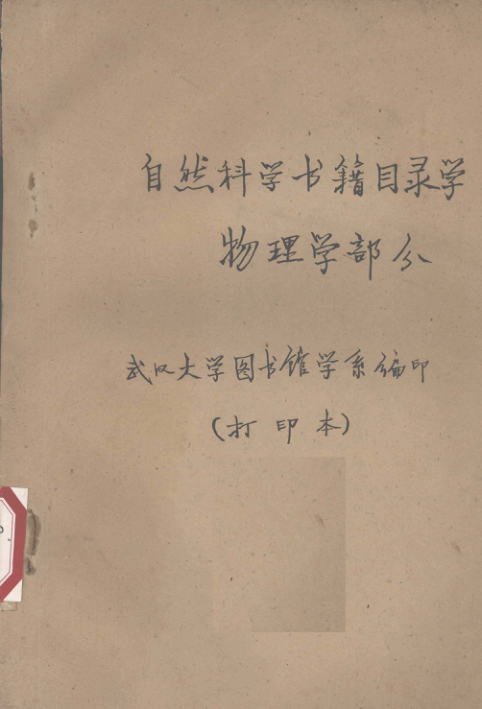 自然科学书籍目录学
物理学部分
武汉大学图书馆学系编印
(打印本)